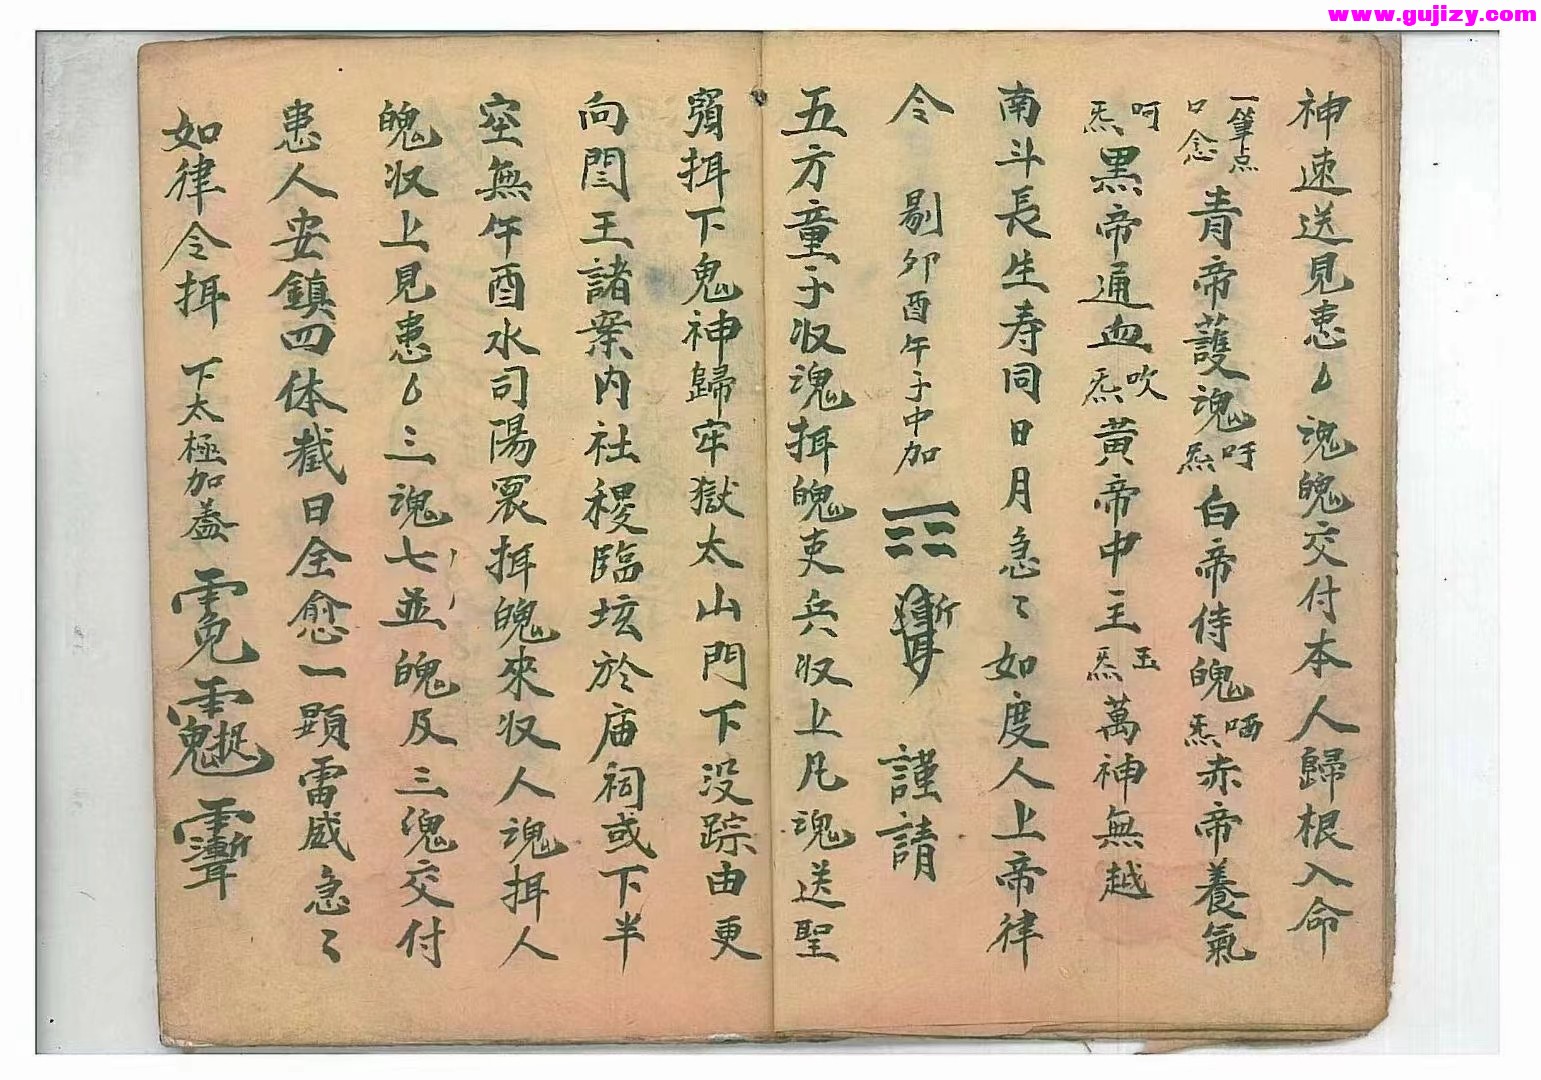 www.gujizy.com
神速送見患魂魄交付本人歸根入命
一筆点口念青帝護魂吁炁白帝侍魄呬炁赤帝養氣
呵炁黑帝通血吹炁黃帝中主炁萬神無越
南斗長生寿同日月急々如度人上帝律
令 剔卯酉午子中加 ☳ 謹請
五方童子收魂挕魄吏兵收上凡魂送聖
挕下鬼神歸牢獄太山門下没踪由更
向閆王諸案内社稷臨垓於庙祠或下半
空無午酉水司陽罡挕魄來收人魂挕人
魄收上見患三魂七並魄及三魂交付
患人安鎮四体截日全愈一顕雷威急々
如律令挕 下太極加蓋